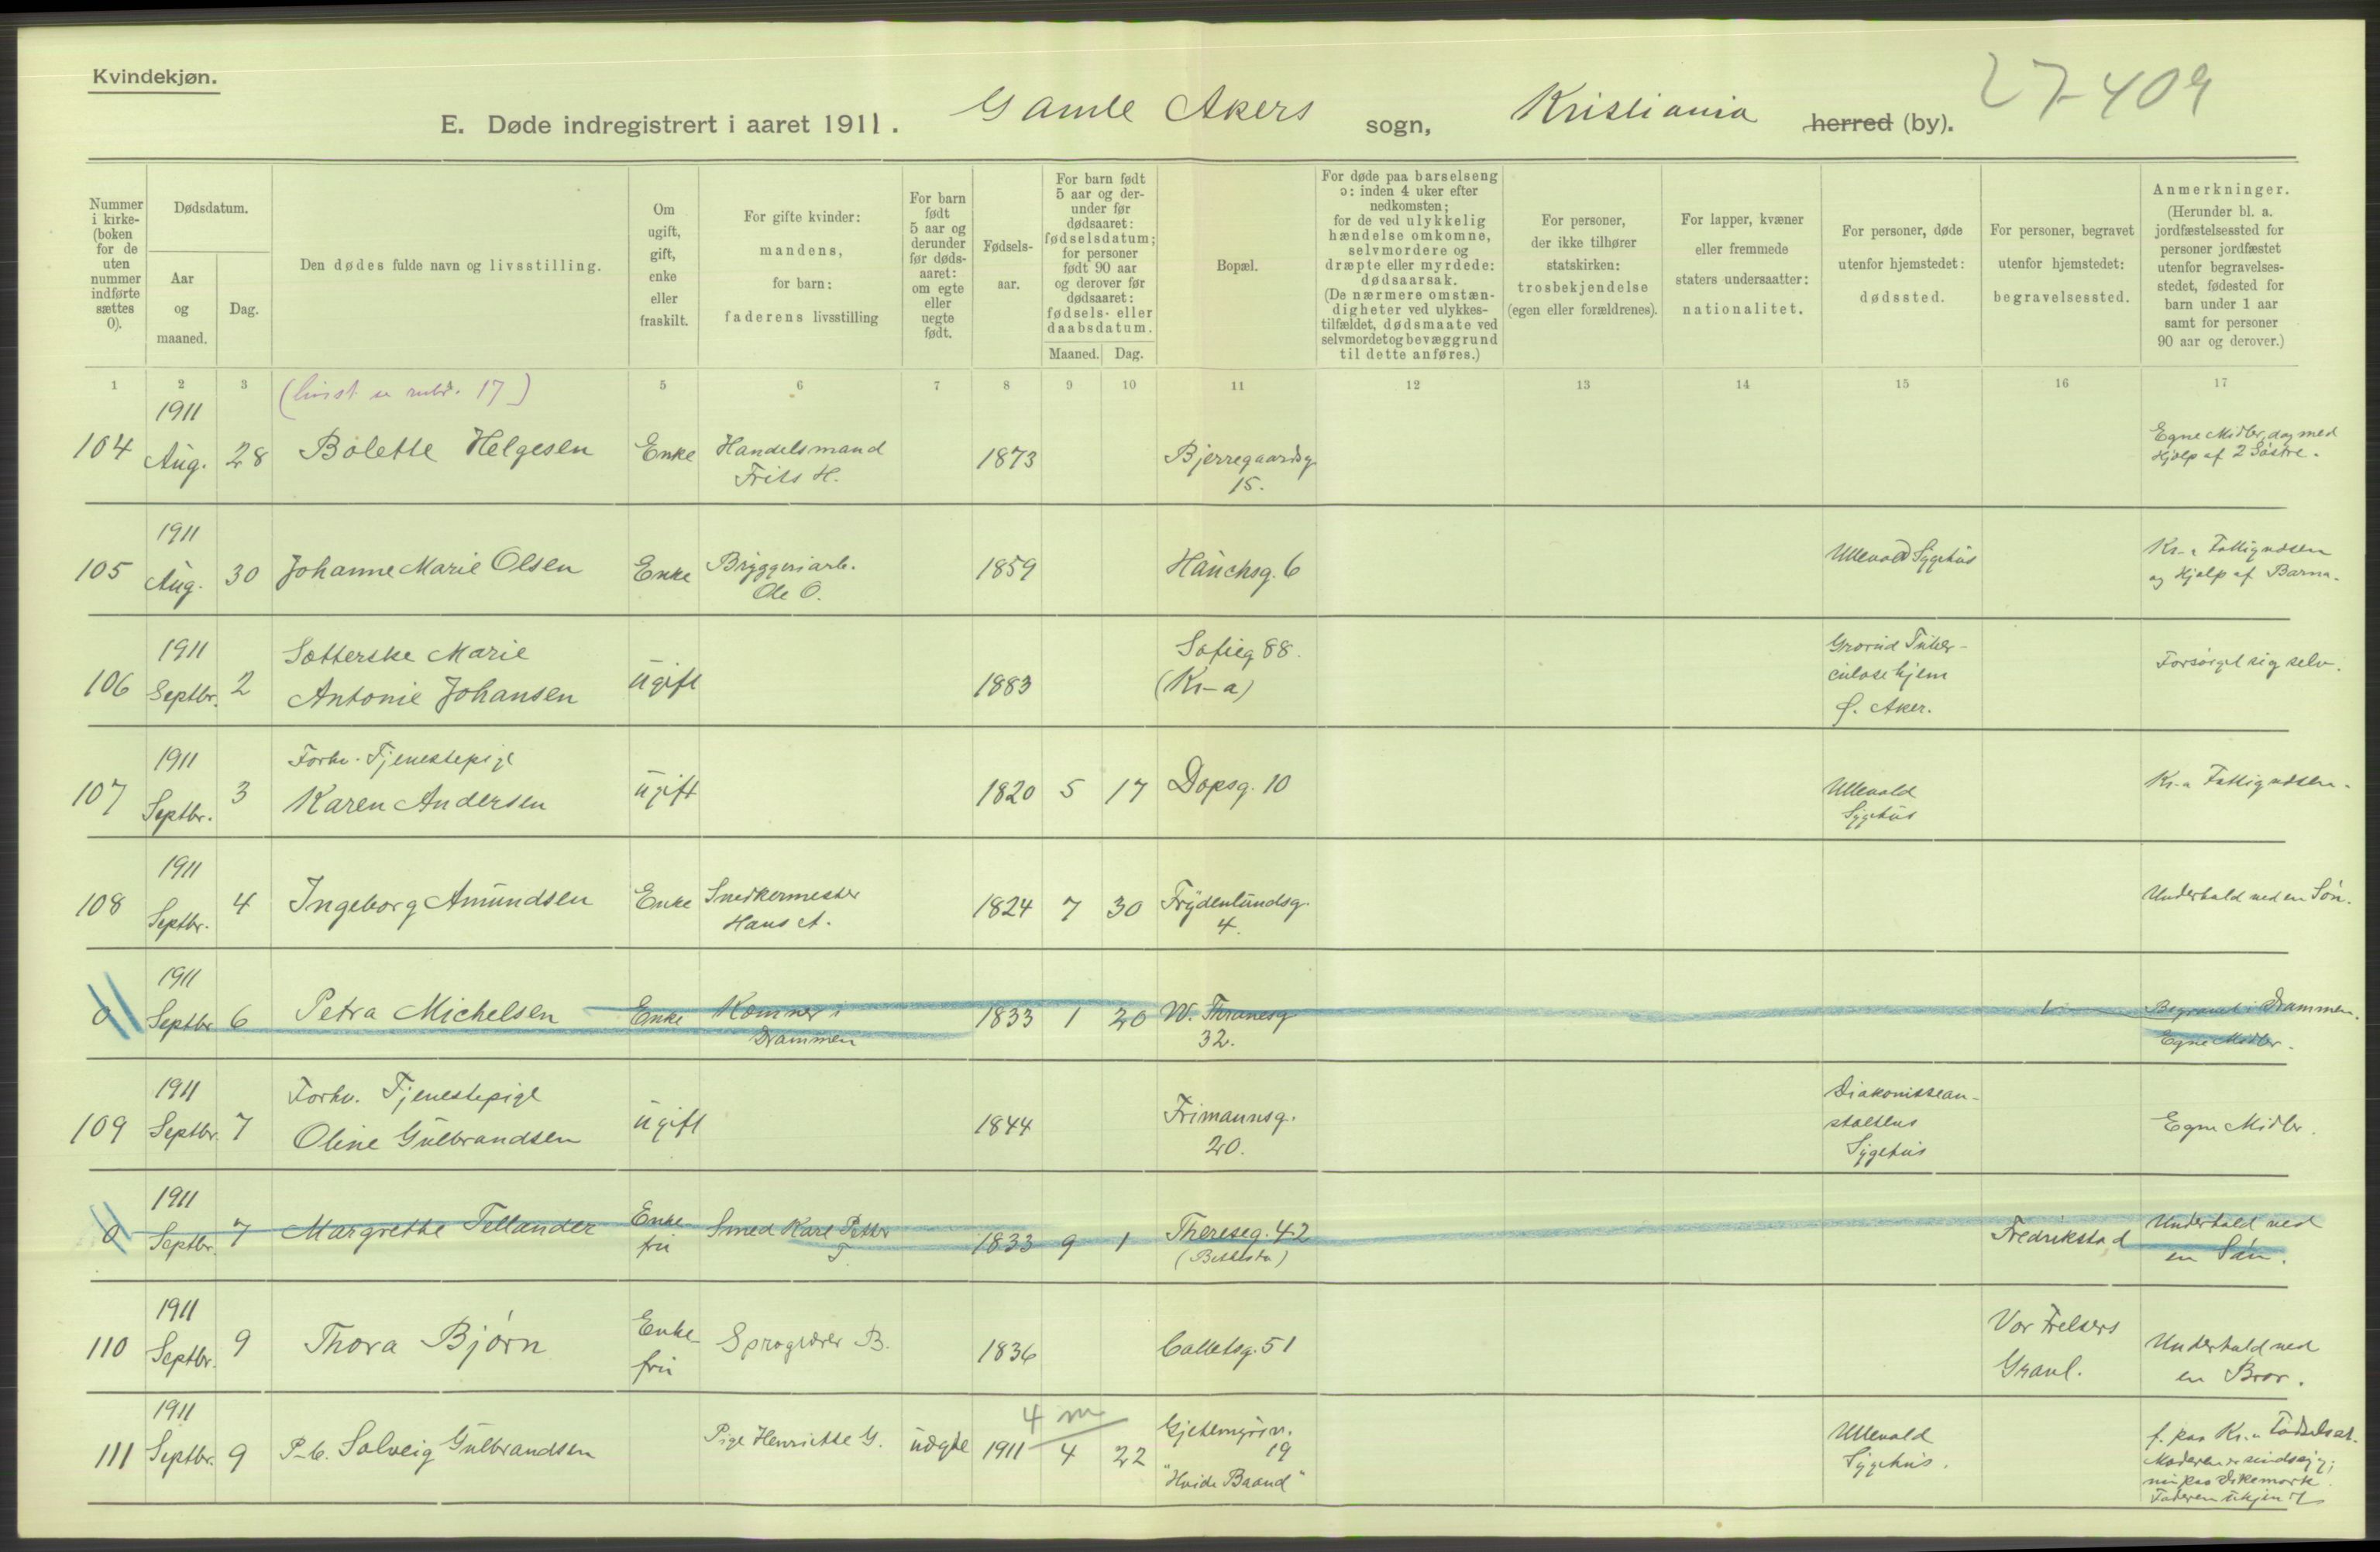 Kvindekjøn.
27-409
E. Døde indregistrert i aaret 1911. Gamle Akers sogn, Kristiania herred (by).
Nummer i kirke-(boken for de uten nummer indførte sættes 0).
Dødsdatum.
Aar og maaned.
Dag.
Den dødes fulde navn og livsstilling.
Om ugift, gift, enke eller fraskilt.
For gifte kvinder: mandens, for barn: faderens livsstilling
For barn født 5 aar og derunder før døds-aaret: om egte eller uegte født.
Fødsels-aar.
For barn født 5 aar og der-under før dødsaaret: fødselsdatum; for personer født 90 aar og derover før dødsaaret: fødsels- eller daabsdatum.
Maaned. Dag.
Bopæl.
For døde paa barselseng ɔ: inden 4 uker efter nedkomsten; for de ved ulykkelig hændelse omkomne, selvmordere og dræpte eller myrdede: dødsaarsak. (De nærmere omstæn-digheter ved ulykkes-tilfældet, dødsmaate ved selvmordet og bevæggrund til dette anføres.)
For personer, der ikke tilhører statskirken: trosbekjendelse (egen eller forældrenes).
For lapper, kvæner eller fremmede staters undersaatter: nationalitet.
For personer, døde utenfor hjemstedet: dødssted.
For personer, begravet utenfor hjemstedet: begravelsessted.
Anmerkninger. (Herunder bl. a. jordfæstelsessted for personer jordfæstet utenfor begravelses-stedet, fødested for barn under 1 aar samt for personer 90 aar og derover.)
1 2 3 (livsst. se rubr. 17) 5 6 7 8 9 10 11 12 13 14 15 16 17
104 1911 Aug. 28 Bolette Helgesen Enke Handelsmand Frits H. 1873 Bjerregaardsg 15. Egne Midler, dog med Hjælp af 2 Søstre.
105 1911 Aug. 30 Johanne Marie Olsen Enke Bryggeriarb. Ole O. 1859 Hauchsg. 6 Ullevold Sygehus Kr-a Fattigvæsen og Hjælp af Barna.
106 1911 Septbr. 2 Sætterske Marie Antonie Johansen ugift 1883 Sofieg 88. (Kr-a) Grorud Tuber-culosehjem Ø. Aker. Forsørget sig selv.
107 1911 Septbr. 3 Forhv. Tjenestepige Karen Andersen ugift 1820 5 17 Dopsg. 10 Ullevold Sygehus Kr.a Fattigvæsen.
108 1911 Septbr. 4 Ingeborg Amundsen Enke Snedkermester Hans A. 1824 7 30 Frydenlundsg. 4. Underhold ved en Søn.
0 1911 Septbr 6 Petra Michelsen Enke Kæmner i Drammen 1833 1 20 W. Thranesg 32. Begravet i Drammen. Egne Midler.
109 1911 Septbr. 7 Forhv. Tjenestepige Oline Gulbrandsen ugift 1844 Frimannsg. 20. Diakonissean-staltens Sygehus Egne Midler.
0 1911 Septbr. 7 Margrethe Tellander Enke fru Smed Karl Petter T. 1833 9 1 Thereseg. 42 (Bethesda) Fredrikstad Underhold ved en Søn.
110 1911 Septbr. 9 Thora Bjørn Enke fru Sproglærer B. 1836 Colletsg. 51 Vor Frelsers Gravl. Underhold ved en Bror.
111 1911 Septbr. 9 P-b. Solveig Gulbrandsen Pige Henriette G. uægte 1911 4 m 4 22 Gjetemyrsv. 19 "Hvide Baand" Ullevold Sygehus. f. paa Kr.a Fødselsst. Moderen er sindssyg; nu paa Dikemark. Faderen ukjendt